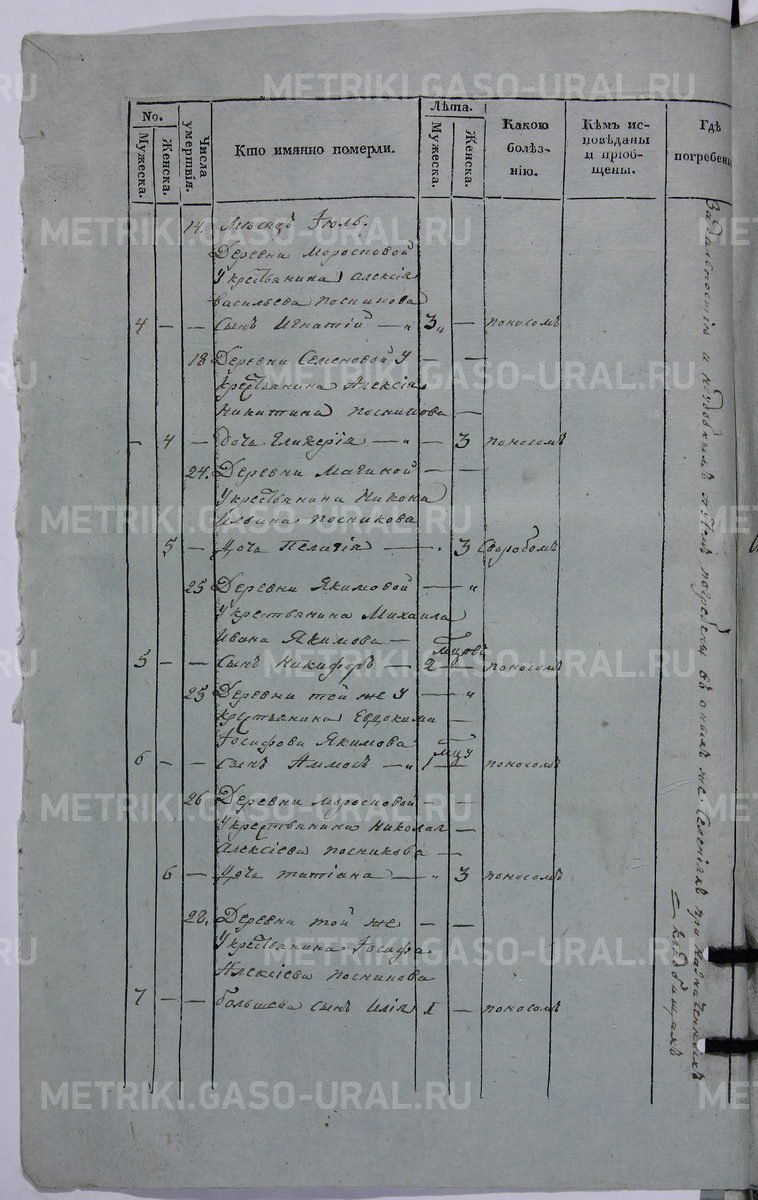 METRIKI.GASO-URAL.RU
No.
Мужеска.
Женска.
Числа умертвія.
Кто имянно померли.
Лѣта.
Мужеска.
Женска.
Какою болѣз-
нію.
Кѣмъ ис-
повѣданы
и пріоб-
щены.
Гдѣ
погребены
14. Мѣсяцъ Іюль.
Деревни Моросновой
У крестьянина Алексія
Васильева Посникова
4 — — Сынъ Игнатій — „ 3„ — поносомъ
18 Деревни Семеновой У — —
крестьянина Алексія
Никитина Посникова —
— 4 — доча Гликерія — „ — 3 поносомъ
24. Деревни Мачиной — —
У крестьянина Никона
Ильина Посникова
5 — Доча Пелагія — . 3 Скоробомъ
25 Деревни Якимовой — „
У крестьянина Михаила
Ивана Якимова — мцовъ
5 — — Сынъ Никифоръ — 2 — поносомъ
25 Деревни той же У — „
крестьянина Евдокима —
Іосифова Якимова мцу
6 — — сынъ Аммосъ — „ 1 — поносомъ
26 Деревни Моросновой — —
У крестьянина Николая —
Алексіева Посникова —
6 — Доча Татіана — „ 3 поносомъ
28. Деревни той же — —
У крестьянина Іосифа
Алексіева Посникова
7 — — большева сынъ Илія 1 — поносомъ
За дальностію и
погребены въ оныхъ же Селеніяхъ при назначенныхъ
кладбищахъ